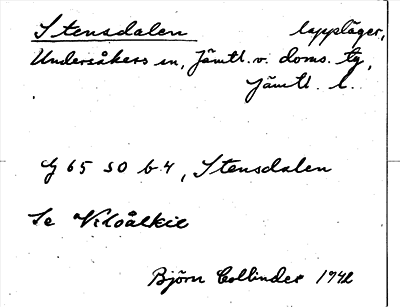 Stensdalen lappläger,
Undersåkers sn, Jämtl. v. doms. tg,
Jämtl. l.
G 65 SO b 4, Stensdalen
Se
Björn Collinder 1942